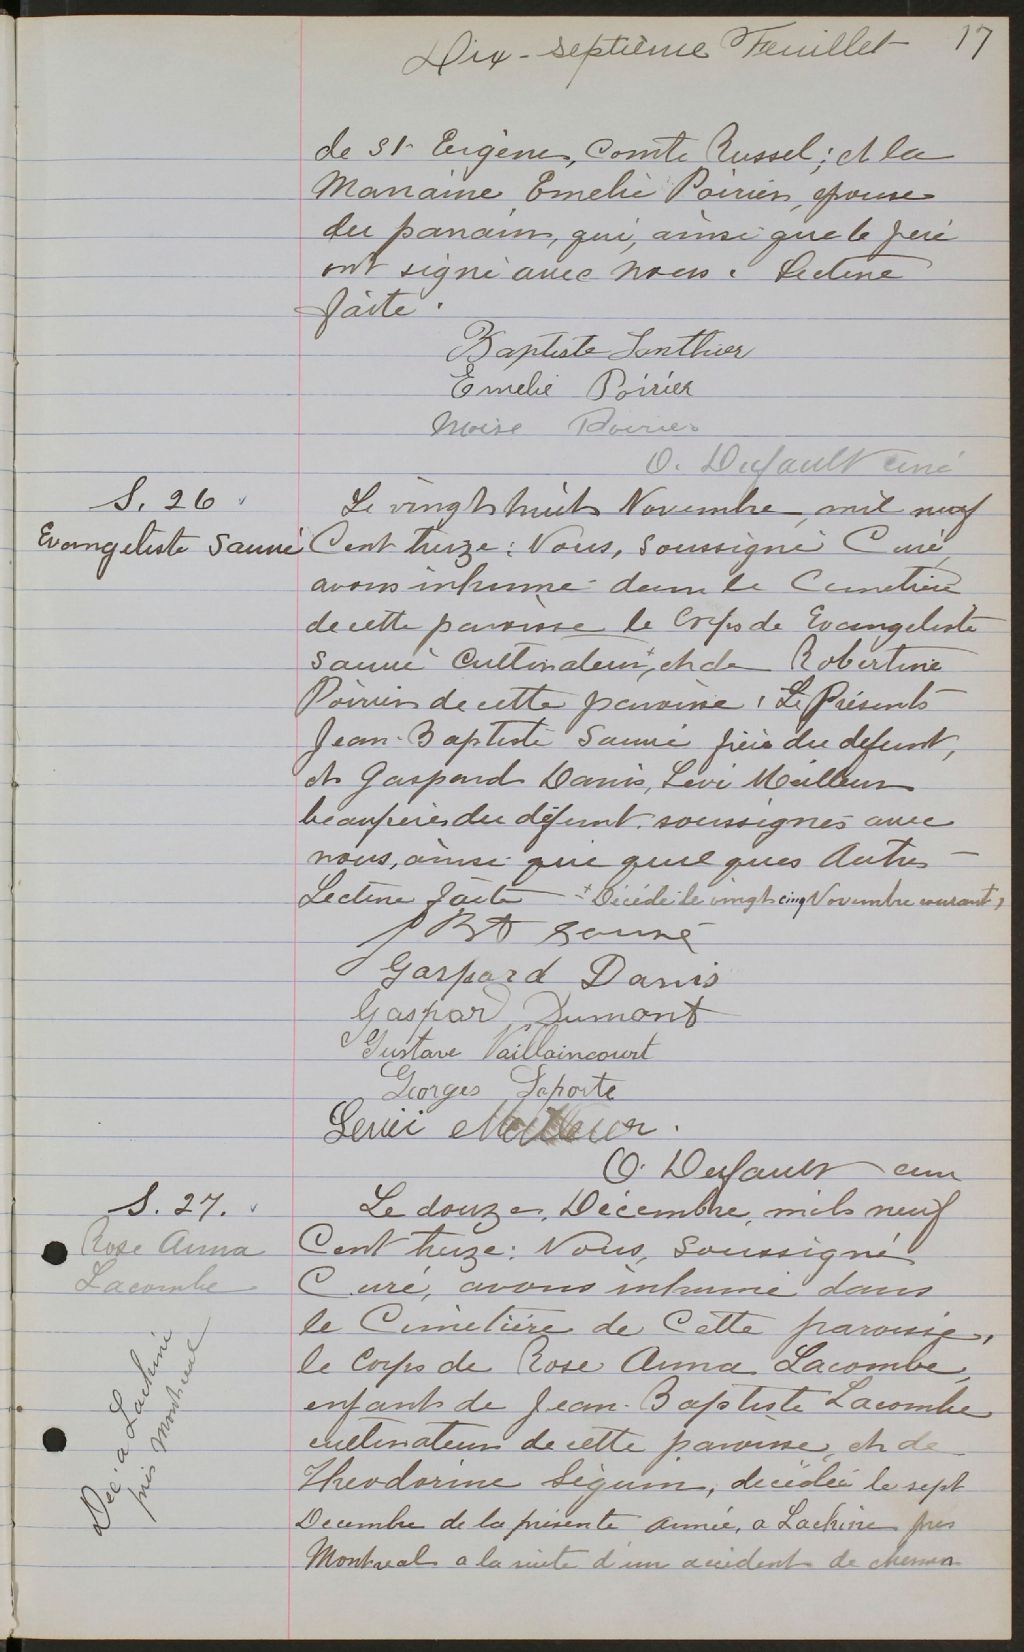 Dix-septième Feuillet 17
de St Eugène, Comté Russel; et la
Marraine Emelie Poirier, epouse
du parrain, qui, ainsi que le père
ont signé avec nous. Lecture
faite.
Baptiste Lonthier
Emelie Poirier
Moise Poirier
O. Dufault curé
S. 26
Evangeliste Sauvé
Le vingt huit Novembre, mil neuf
Cent treize: Nous, soussigné Curé,
avons inhumé dans le Cimetière
de cette paroisse le Corps de Evangeliste
Sauvé Cultivateur+, et de Robertine
Poirier de cette paroisse. Présents
Jean-Baptiste Sauvé père du defunt,
et Gaspard Danis, Levi Meilleur
beaupère du défunt. soussignés avec
nous, ainsi que quelques Autres —
Lecture faite + Décédé le vingt cinq Novembre courant,
J Bt Souvé
Gaspard Danis
Gaspard Dumont
Gustave Vaillaincourt
Georges Laporte
Levii Meilleur.
O. Dufault curé
S. 27.
Rose Anna
Lacombe
Déc. a Lachine
près Montreal
Le douze, Décembre, mil neuf
Cent treize: Nous, Soussigné
Curé, avons inhumé dans
le Cimetière de Cette paroisse,
le Corps de Rose Anna Lacombe,
enfant de Jean-Baptiste Lacombe
cultivateur de cette paroisse, et de
Theodorine Séguin, décédée le sept
Decembre de la présente année, a Lachine près
Montreal a la suite d'un accident de chemin